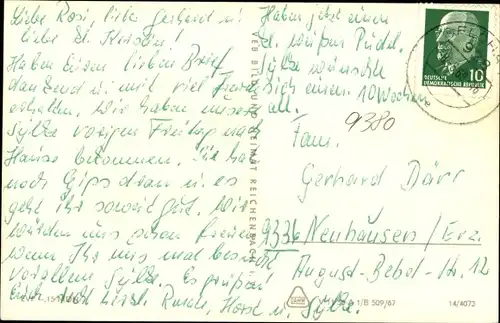 Liebe Rosi, lieber Gerhard u.
liebe kl. Kerstin!
Haben Euren lieben Brief
dankend u. mit viel Freude
erhalten. Wir haben unsere
Sylke vorigen Freitag nach
Hause bekommen. Sie hat
noch Gips dran u. es
geht ihr soweit gut. Wir
würden uns schon freuen
wenn Ihr uns mal besucht
vor allem Sylke. Es grüßen
Euch Ruth, Horst u. Sylke.
Haben jetzt einen
kl. weißen Pudel.
Sylke wünschte
sich einen 10 Wochen
alt.
VEB BILD UND HEIMAT REICHENBACH
DEUTSCHE
DEMOKRATISCHE REPUBLIK
10
9380
Fam.
Gerhard Dürr
9336 Neuhausen / Erz.
August-Bebel-Str. 12
1/B 509/67
14/4073